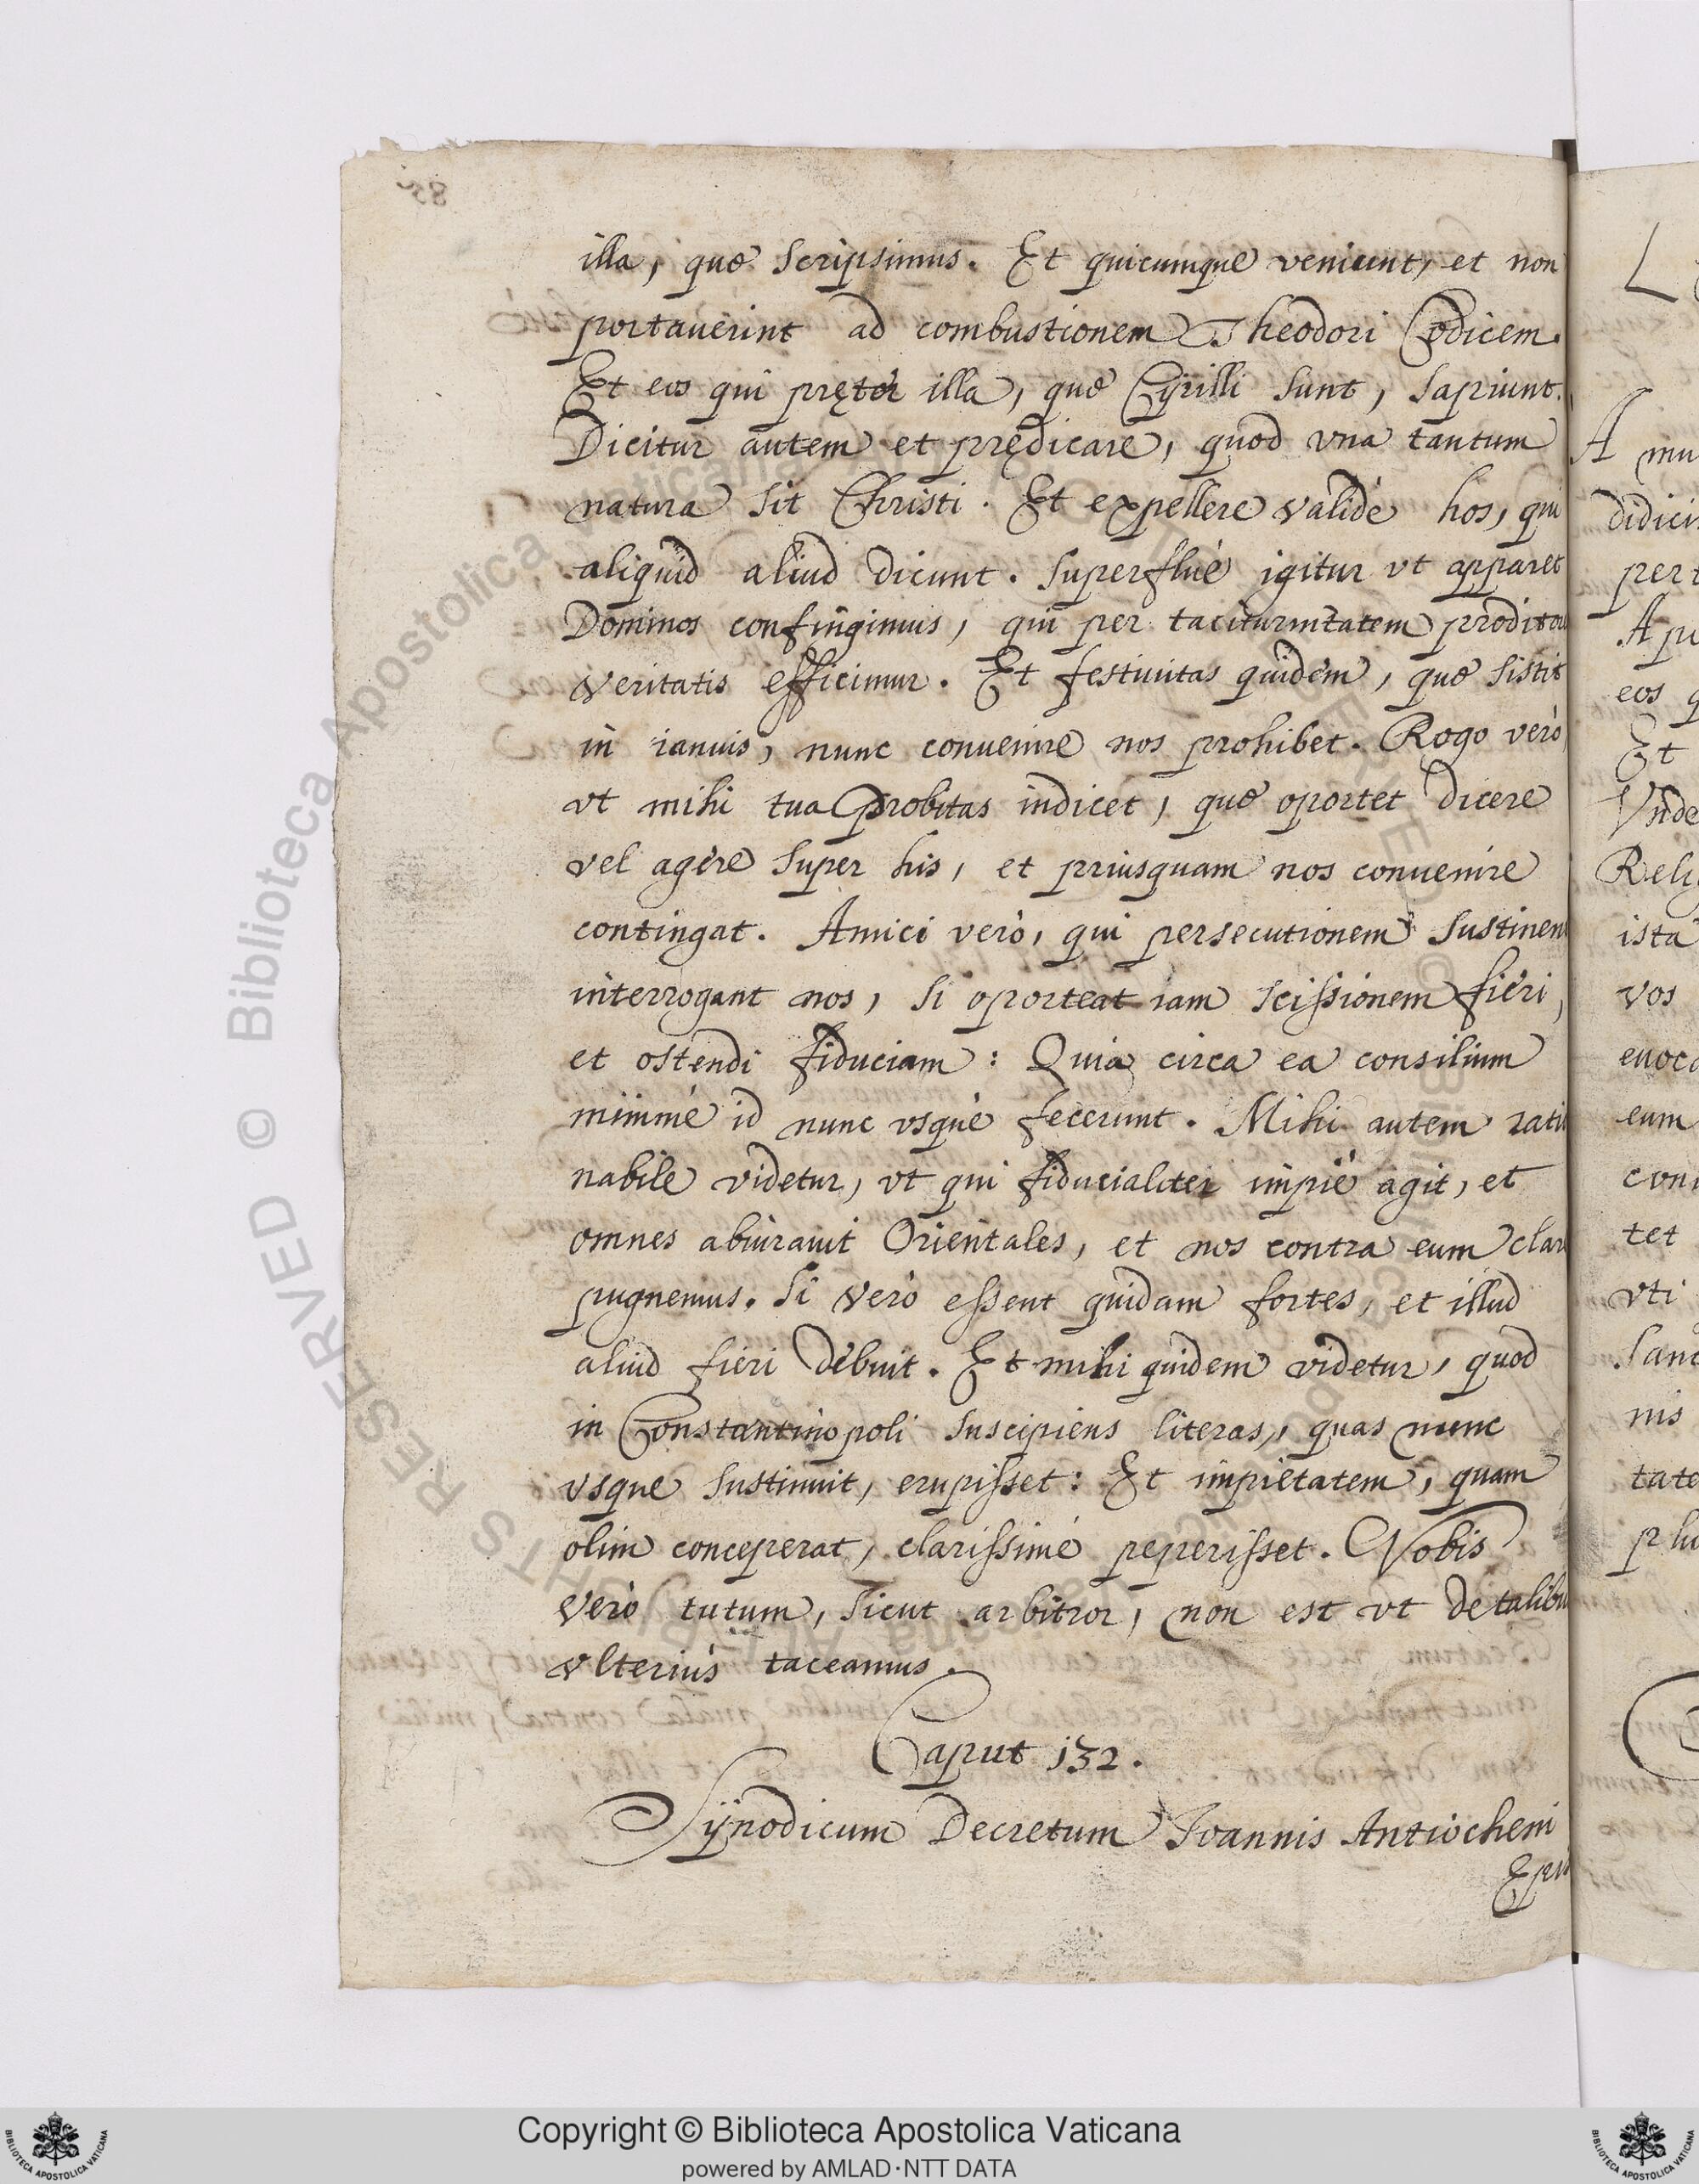 illa, quæ scripsimus. Et quicumque veniunt, et non
portauerint ad combustionem Theodori Codicem.
Et eos qui pręter illa, quæ Cyrilli sunt, sapiunt.
Dicitur autem et prędicare, quod vna tantum
natura sit Christi. Et expellere validè hos, qui
aliquid aliud dicunt. Superfluè igitur vt apparet
Dominos confingimus, qui per taciturnitatem prodito
veritatis efficimur. Et festiuitas quidem, quæ sistit
in ianuis, nunc conuenire nos prohibet. Rogo verò
vt mihi tua Probitas indicet, quæ oportet dicere
vel agere super his, et priusquam nos conuenire
contingat. Amici verò, qui persecutionem sustinen
interrogant nos, si oporteat iam scissionem fieri,
et ostendi fiduciam: Quia circa ea consilium
minimè id nunc vsquè fecerunt. Mihi autem ratio
nabile videtur, vt qui fiducialiter impiè agit, et
omnes abiurauit Orientales, et nos contra eum clar
pugnemus. Si verò essent quidam fortes, et illud
aliud fieri debuit. Et mihi quidem videtur, quod
in Constantinopoli suscipiens literas, quas nunc
vsque sustinuit, erupisset: Et impietatem, quam
olim conceperat, clarissimè peperisset. Nobis
verò tutum, sicut arbitror, non est vt de talibu
vlteriùs taceamus.
Caput 132.
Synodicum Decretum Ioannis Antiocheni
Epis
L
A mu
didici
pert
Apu
eos q
Et
Vnde
Relig
ista
vos
euoca
eum
con
tet
vti
Sanc
nis
tate
plu
85
© Biblioteca Apostolica Vaticana
ALL RIGHTS RESERVED
Copyright © Biblioteca Apostolica Vaticana
powered by AMLAD·NTT DATA
BIBLIOTECA APOSTOLICA VATICANA
BIBLIOTECA APOSTOLICA VATICANA